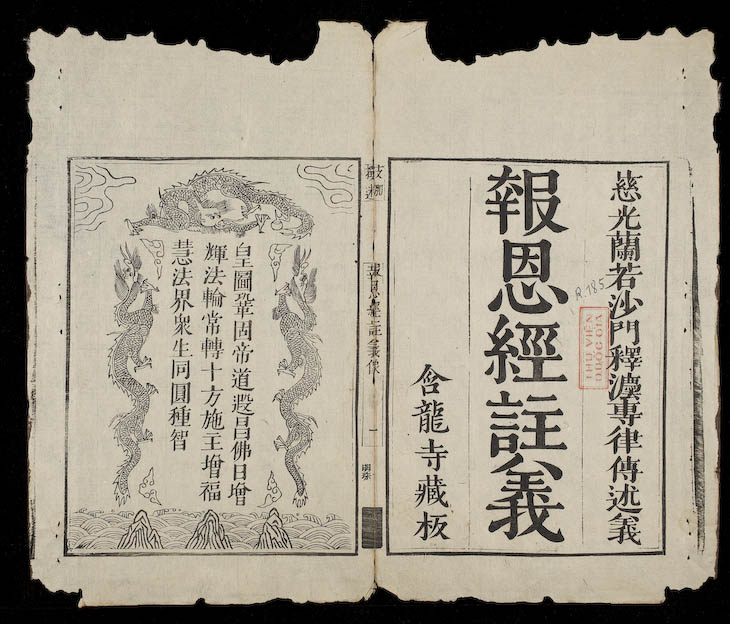 慈光蘭若沙門釋濅専律傳述義
報恩經註義
含龍寺藏板
R.185
THƯ VIỆN
QUỐC GIA
報恩經註義像
一
皇圖鞏固帝道遐昌佛日增
輝法輪常轉十方施主增福
慧法界衆生同圓種智